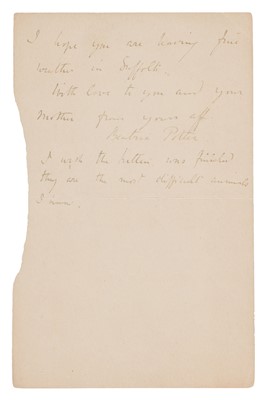 I hope you are having fine
weather in Suffolk.
With love to you and your
Mother from yours aff
Beatrix Potter
I wish the kitten was finished
they are the most difficult animals
I know.